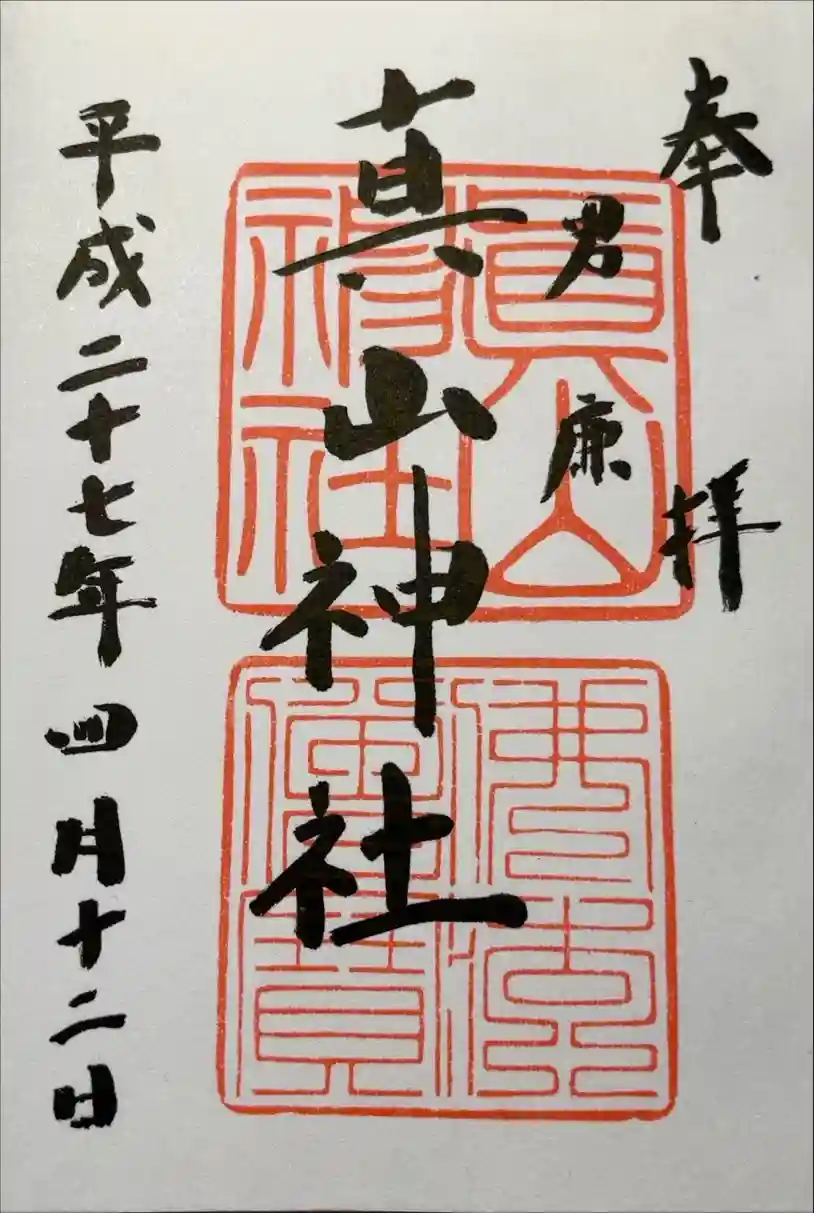 奉拝
男鹿
真山神社
平成二十七年四月十二日
眞山
神社
佛法
僧寳